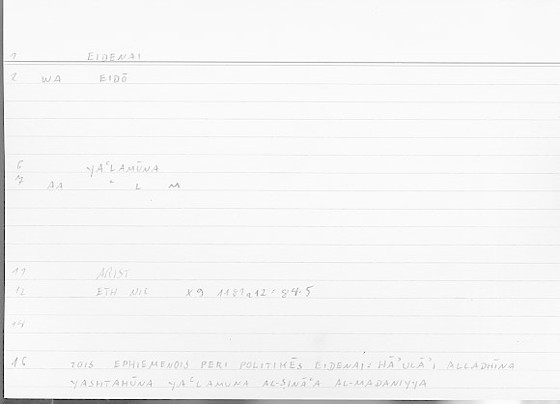 1 EIDENAI
2 WA EIDŌ
6 YAʿLAMŪNA
7 AA ʿ L M
11 ARIST
12 ETH NIC X 9 1181a12 = 84.5
14
16 TOIS EPHIEMENOIS PERI POLITIKĒS EIDENAI: HĀʾULĀʾI ALLADHĪNA
YASHTAHŪNA YAʿLAMUNA AL-ṢINĀʿA AL-MADANIYYA